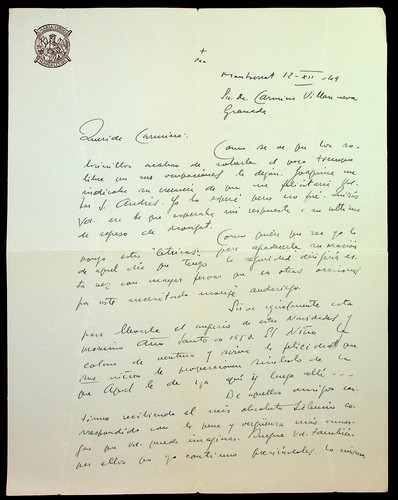 +
Pax
Montserrat 12-XII-949
Sra. Da. Carmina Villanueva
Granada
Querida Carmina:
Como se ve que los so-
brinillos acaban de robarle el poco tiempo
libre que sus ocupaciones le dejan. Joaquina me
indicaba su creencia de que me felicitaría Vd.
por S. Andrés. Yo lo esperé pero no fué. Quizás
Vd. era la que esperaba mi respuesta a su última
de regreso de
Como quiera que sea yo le
pongo estas letricas para agradecerle su oración
de aquel día que tengo la seguridad dirigiría es-
ta vez con mayor fervor que en otras ocasiones
por este necesitado monje andariego.
Sirva igualmente esta
para llevarle el augurio de estas Navidades y
próximo Año Santo de 1950. El Niño la
colme de ventura y sirva la felicidad que
sus niños le proporcionen símbolo de la
que Aquel le dé ya aquí y luego allí ---
De aquellos amigos con-
tinuo recibiendo el más absoluto silencio co-
rrespondido con la pena y vergüenza más amar-
gas que Vd. pueda imaginar. Ruegue Vd. también
por ellos que yo continuo queriéndoles lo mismo